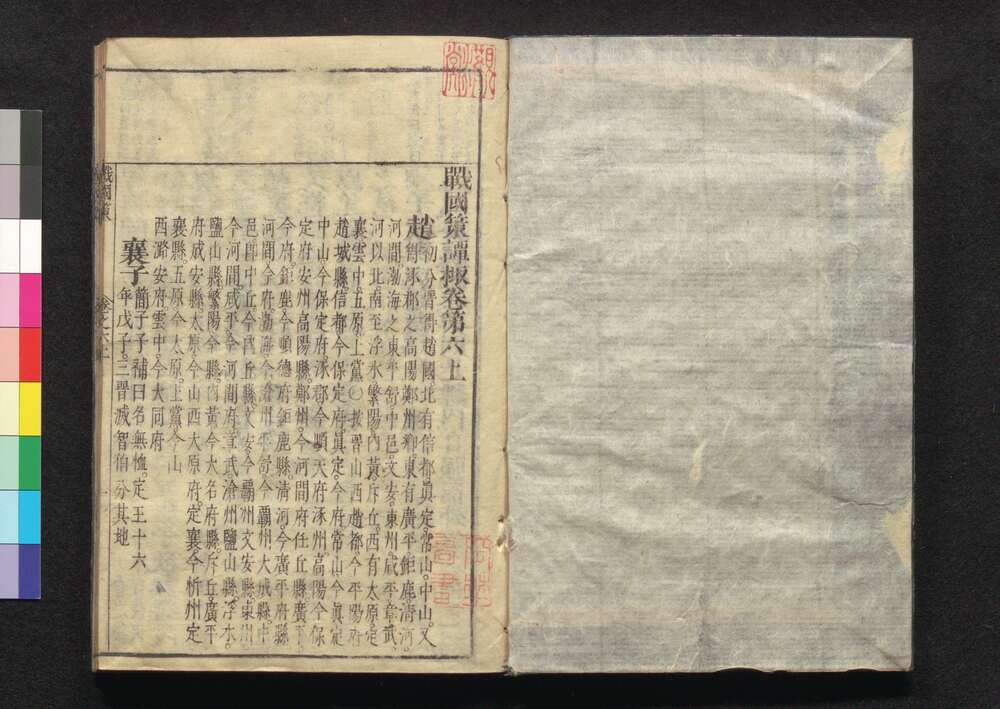 戰國策譚棷卷第六上
趙 初分晋得趙國北有信都眞定常山中山又
得涿郡之高陽鄚州鄉東有廣平鉅鹿清河
河間渤海之東平舒中邑文安東州成平章武
河以北南至浮水繁陽內黃斥丘西有太原定
襄雲中五原上黨〇按晋山西趙都今平陽府
趙城縣信都今保定府眞定今府常山今眞定
中山今保定府涿郡今順天府涿州高陽今保
定府安州高陽縣鄚州今河間府任丘縣廣平
今府鉅鹿今順德府鉅鹿縣清河今廣平府縣
河間今府渤海今滄州平舒今霸州大城縣中
邑卽中丘今內丘縣文安今霸州文安縣東州
今河間成平今河間府章武滄州鹽山縣浮水
鹽山縣繁陽今縣內黃今大名府縣斥丘廣平
府成安縣太原今山西大原府定襄今析州定
襄縣五原今太原上黨今山
西潞安府雲中今大同府
襄子 簡子子補曰名無恤定王十六
年戊子三晋滅智伯分其地
戰國策
卷之六上
一